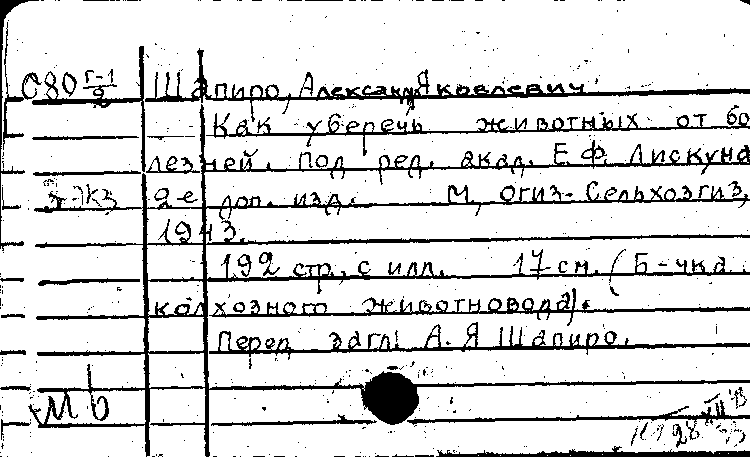 С80 Г-1/2 Шапиро, Александр Яковлевич.
Как уберечь животных от бо
лезней. Под ред. акад. Е.Ф. Лискуна
3-экз 2-е доп. изд. М, Огиз-Сельхозгиз,
1943.
192 стр., с илл. 17 см. (Б-чка
колхозного животновода).
Перед загл: А. Я Шапиро.
28 XII 43